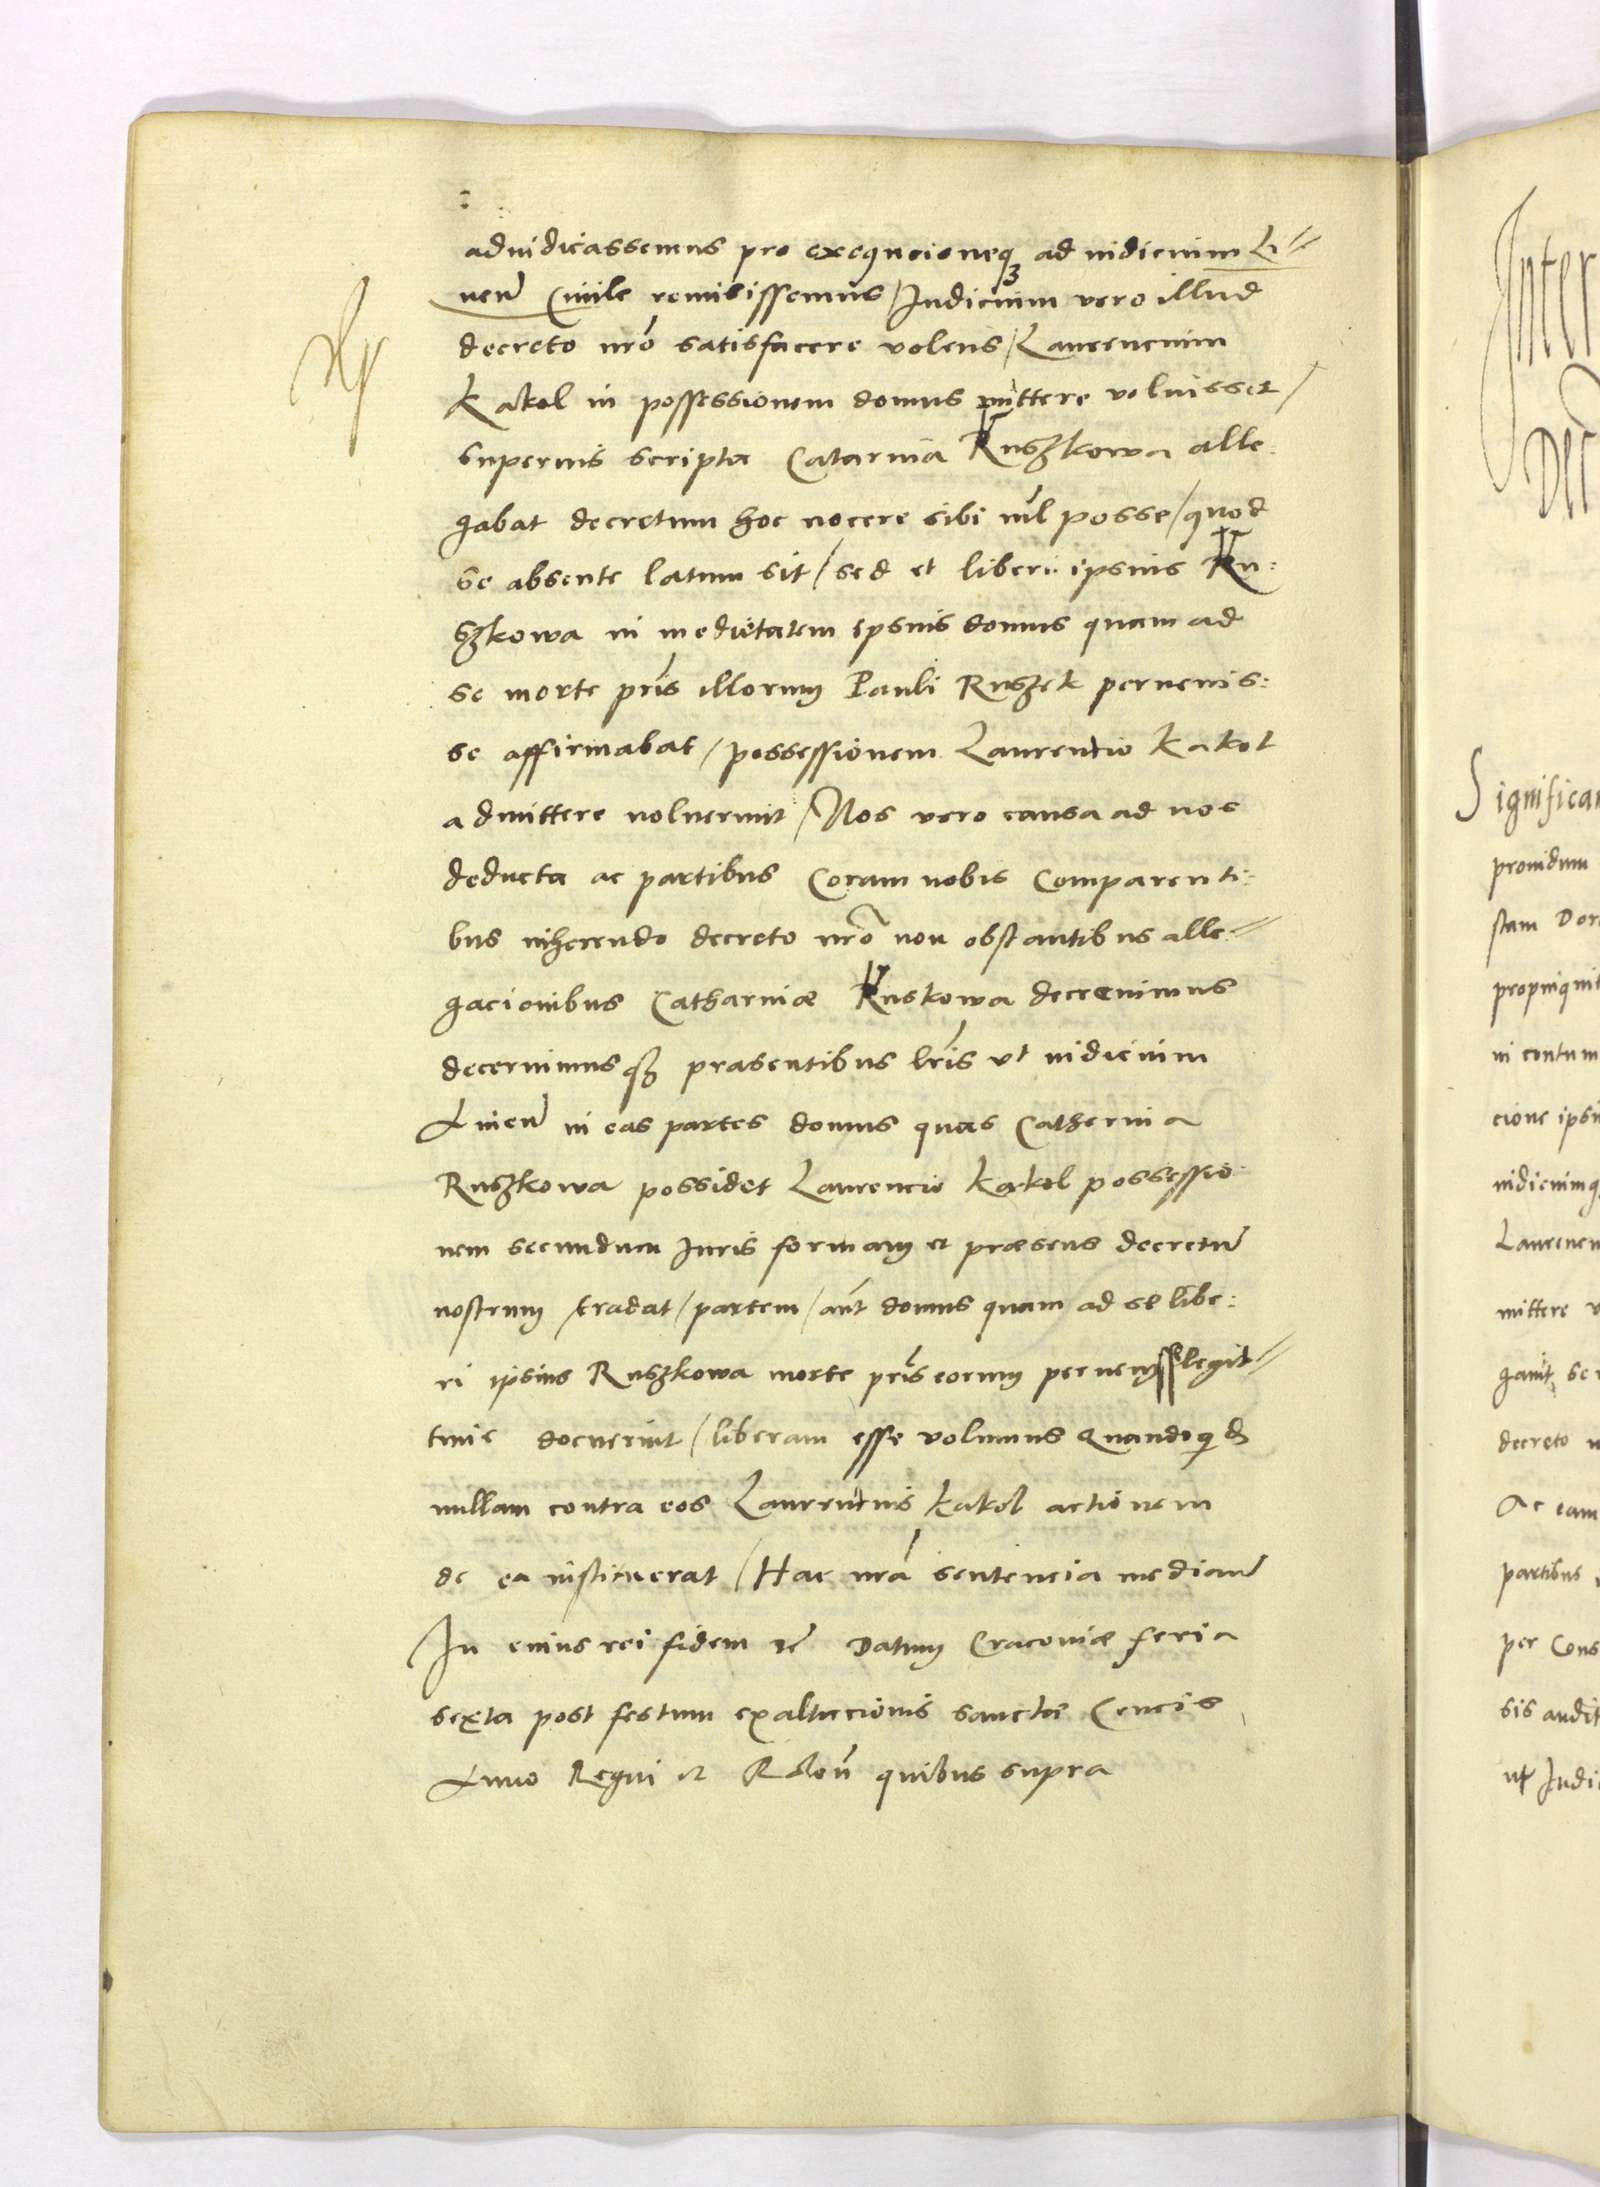 adiudicassemus pro exequcioneqꝫ ad iudicium Li⸗
uen̄ Ciuile remisissemus / Iudicium vero illud
decreto nr̄o satisfacere volens / Laurencium
Kakol in possessionem domus mittere voluisset /
superius scripta Catarina Ruszkowa alle:
gabat decretum hoc nocere sibi nil̄ posse / quod
se absente latum sit / sed et liberi ipsius Ru:
szkowa in medietatem ipsius domus quam ad
se morte pr̄is illorum Pauli Ruszek peruenis:
se affirmabat / possessionem Laurentio Kakol
admittere noluerunt / Nos vero causa ad nos
deducta ac partibus Coram nobis Comparenti:
bus inherendo decreto nr̄o non obstantibus alle⸗
gacionibus Catharinæ Ruskowa decreuimus
decernimusqꝫ præsentibus lr̄is vt iudicium
Liuen̄ in eas partes domus quas Catherina
Ruszkowa possidet Laurencio Kakol possessio:
nem secundum Iuris formam et præsens decretū
nostrum tradat / partem / aūt domus quam ad se libe:
ri ipsius Ruszkowa morte pr̄is eorum peruenisse legit⸗
time docuerint / liberam esse volumus Quandoqd
nullam contra eos Laurentius Kakol actionem
de ea instituerat / Hac nr̄a sentencia median̄
In cuius rei fidem ꝛc̄ Datum Cracouiæ feria
sexta post festum exaltacionis sanctæ Crucis
Anno Regni ꝛ Rōlon̄ quibus supra
Inter
Dec
Significam
prouidum
stam Dor
propinquit
in contum
cione ipsiu
iudiciumq
Laurencn
mittere v
gauit se
decreto n
Ac eam
partibus
per Cons
sis audit
ut Iudi